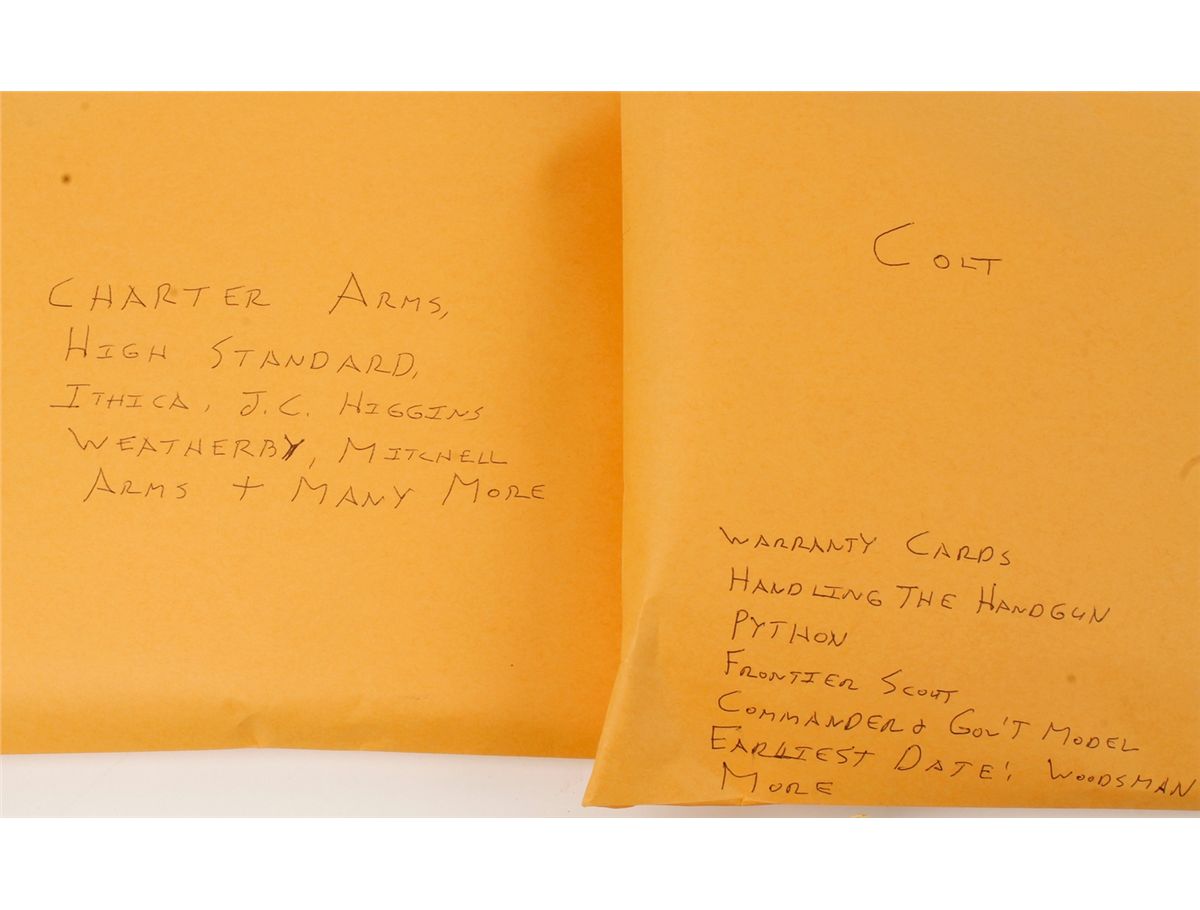 CHARTER ARMS,
HIGH STANDARD,
ITHICA, J.C. HIGGINS
WEATHERBY, MITCHELL
ARMS + MANY MORE
COLT
WARRANTY CARDS
HANDLING THE HANDGUN
PYTHON
FRONTIER SCOUT
COMMANDER & GOV'T MODEL
EARLIEST DATE: WOODSMAN
MORE